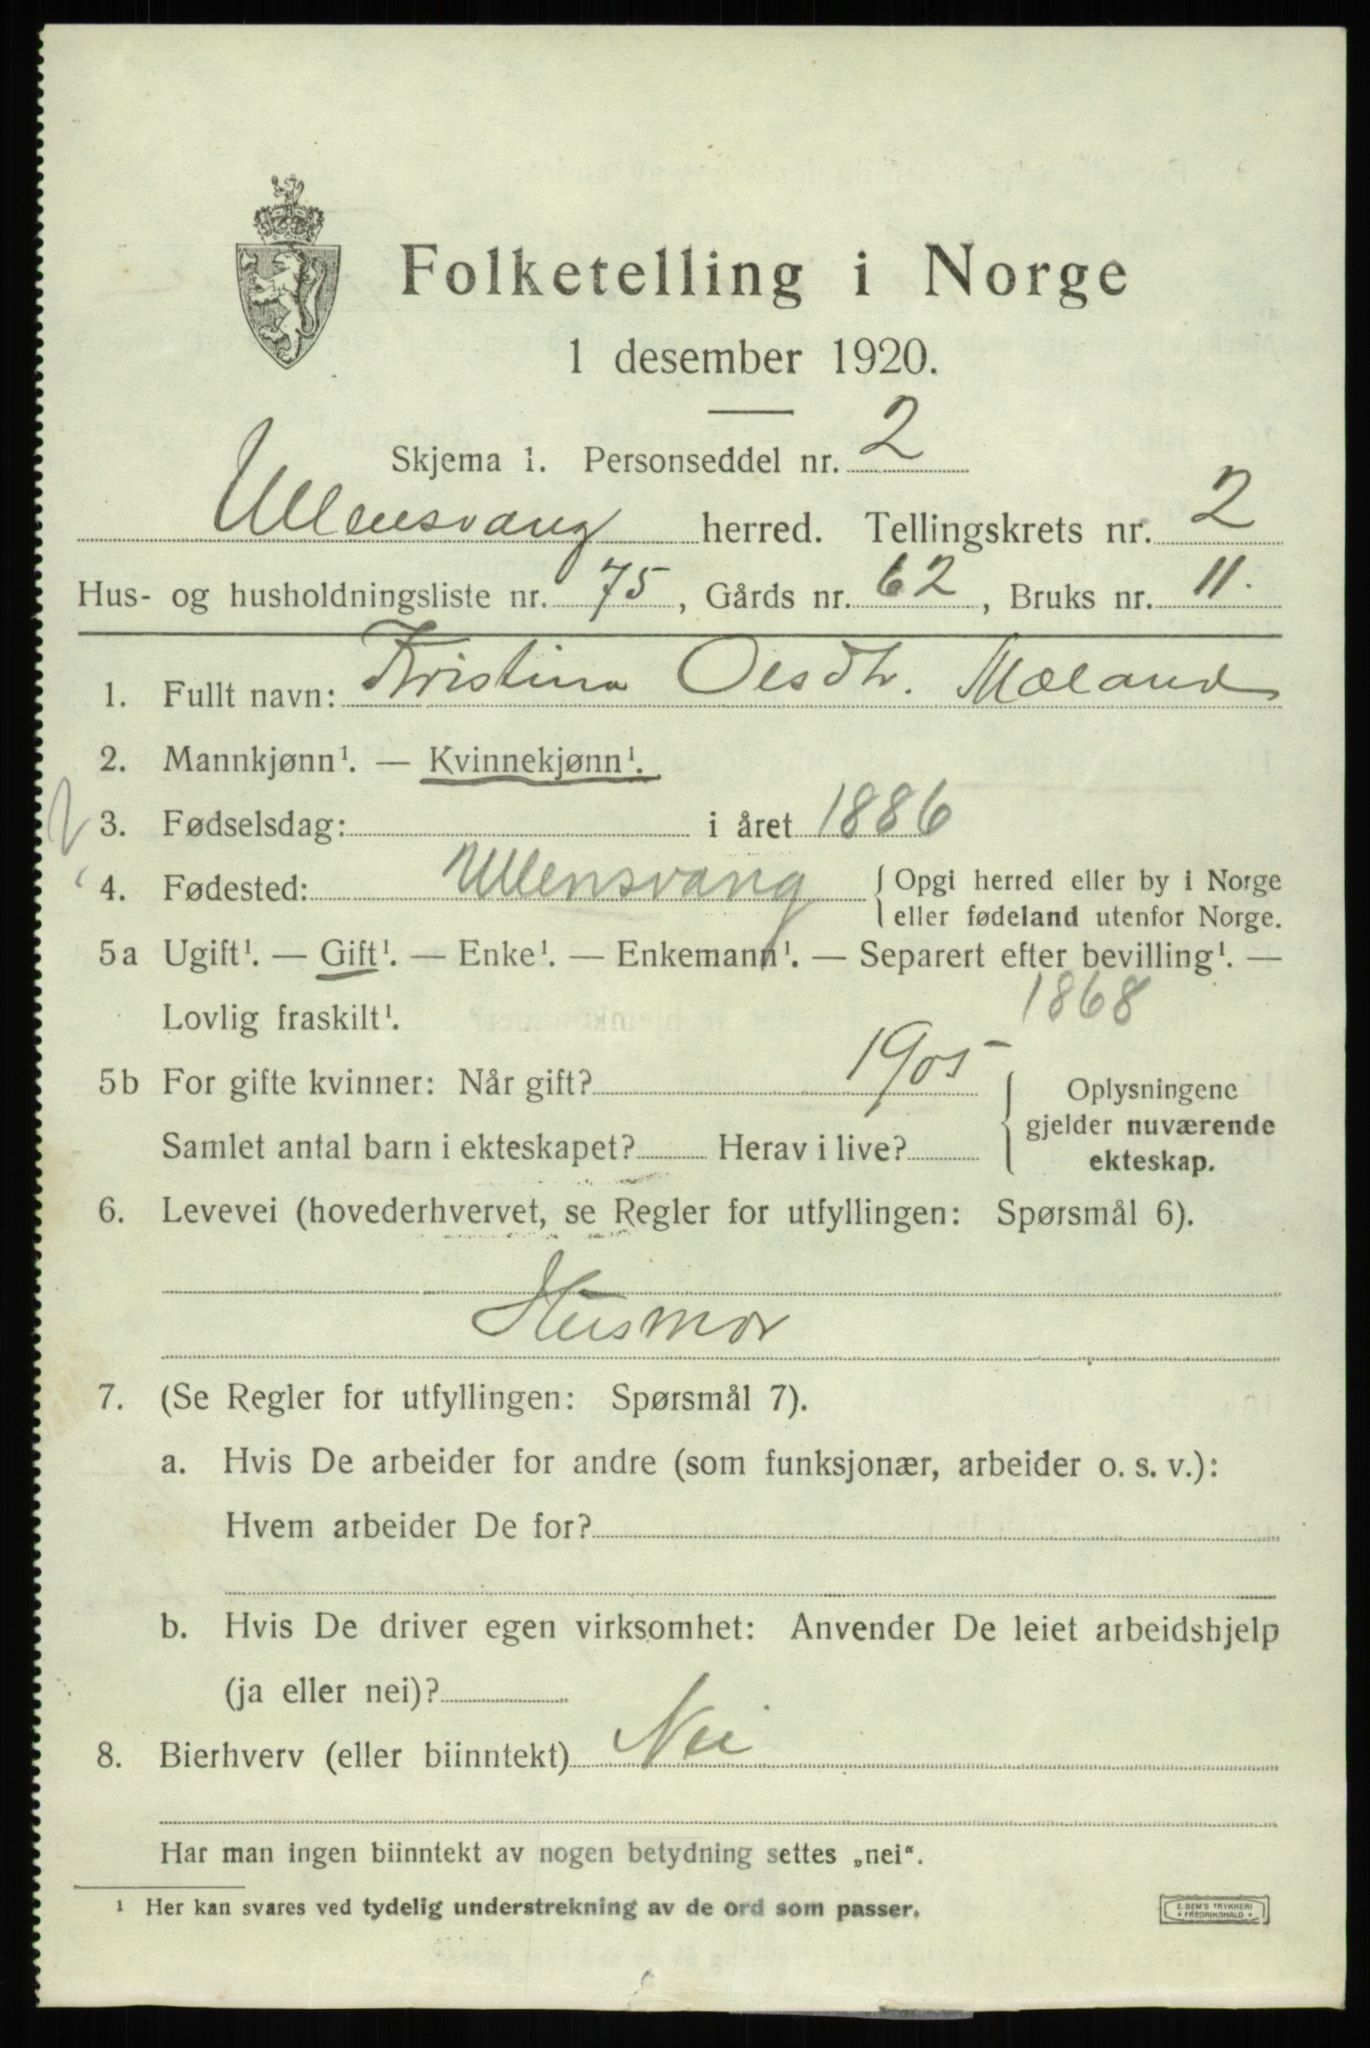 Folketelling i Norge
1 desember 1920.
Skjema 1. Personseddel nr. 2
Ullensvang herred. Tellingskrets nr. 2
Hus- og husholdningsliste nr. 75, Gårds nr. 62, Bruks nr. 11.
1. Fullt navn: Kristina Olsdtr. Mæland
2. Mannkjønn¹. — Kvinnekjønn¹.
3. Fødselsdag: i året 1886
4. Fødested: Ullensvang { Opgi herred eller by i Norge
eller fødeland utenfor Norge.
5a Ugift¹. — Gift¹. — Enke¹. — Enkemann¹. — Separert efter bevilling¹. —
Lovlig fraskilt¹. 1868
5b For gifte kvinner: Når gift? 1905 { Oplysningene
gjelder nuværende
Samlet antal barn i ekteskapet? Herav i live? ekteskap.
6. Levevei (hovederhvervet, se Regler for utfyllingen: Spørsmål 6).
Husmor
7. (Se Regler for utfyllingen: Spørsmål 7).
a. Hvis De arbeider for andre (som funksjonær, arbeider o. s. v.):
Hvem arbeider De for?
b. Hvis De driver egen virksomhet: Anvender De leiet arbeidshjelp
(ja eller nei)?
8. Bierhverv (eller biinntekt) Nei
Har man ingen biinntekt av nogen betydning settes „nei“.
¹ Her kan svares ved tydelig understrekning av de ord som passer.
E. SEM'S TRYKKERI
* FREDRIKSHALD *